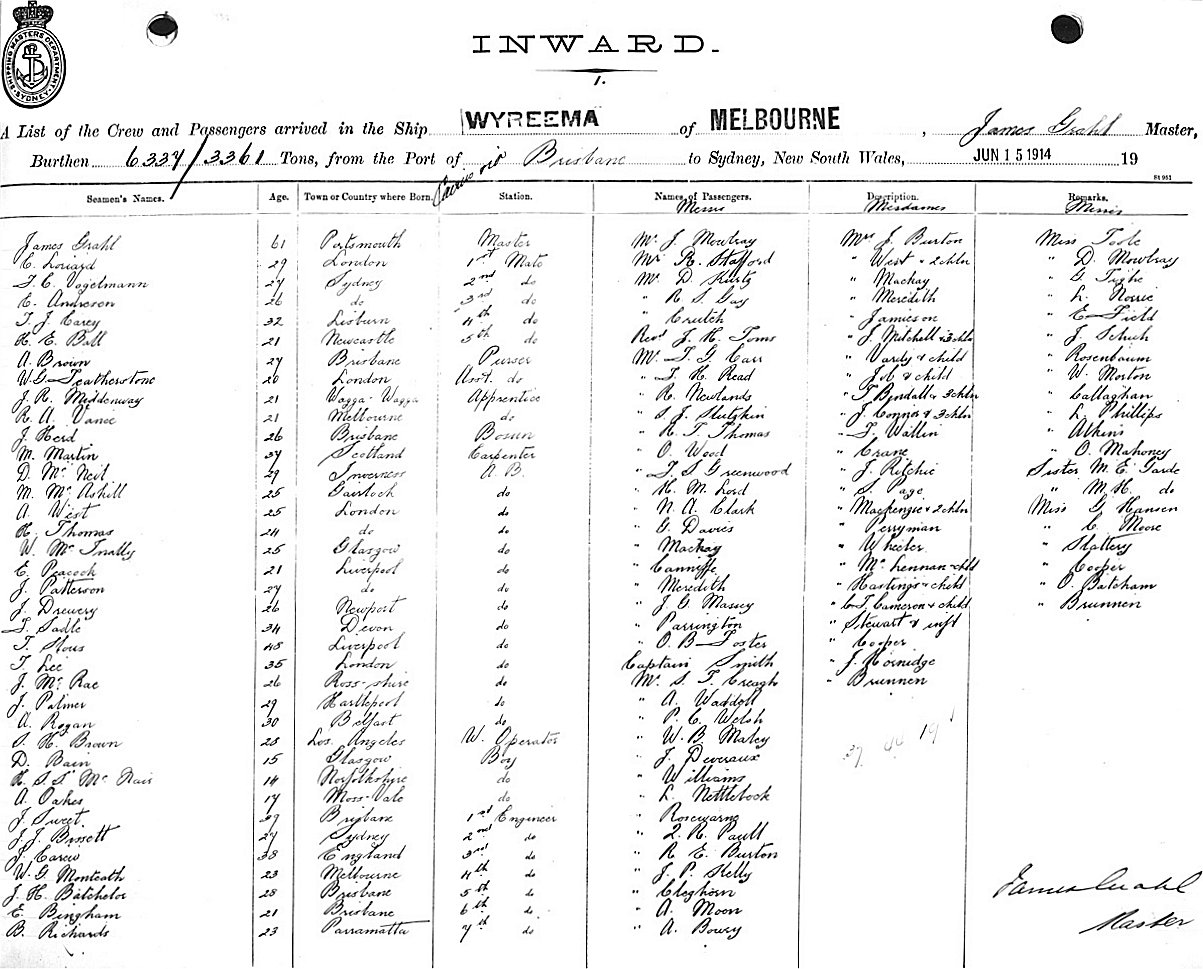 SHIPPING MASTERS DEPARTMENT SYDNEY
INWARD.
1.
A List of the Crew and Passengers arrived in the Ship WYREEMA of MELBOURNE, James Grahl Master,
Burthen 6337/3361 Tons, from the Port of Cairns via Brisbane to Sydney, New South Wales, JUN 15 1914 19
Seamen's Names. Age. Town or Country where Born. Station. Names of Passengers. Description. Remarks.
Messrs Mesdames Misses
James Grahl 61 Portsmouth Master Mr J. Mowbray Mrs J. Burton Miss Toole
29 London 1st Mate Mr R. Stafford " West & 2 chln " D. Mowbray
T. C. Vogelmann 27 Sydney 2nd do Mr D. Kurtz " Mackay " G. Tighe
E. Andreson 26 do 3rd do " R. S. Gay " Meredith " L. Norrie
T. J. Carey 32 Lisburn 4th do " Crutch " Jamieson " E. Field
H. E. Ball 21 Newcastle 5th do Revd J. H. Toms " J. Mitchell & 3 chln " J. Schuh
A. Brown 27 Brisbane Purser Mr T. G. Carr " Vardy & child " Rosenbaum
W. G. Featherstone 20 London Asst. do " T. H. Read " Job & child " W. Morton
J. R. Middenway 21 Wagga-Wagga Apprentice " R. Newlands " T. Bendall & 3 chln " Callaghan
R. A. Vance 21 Melbourne do " S. J. Slutzkin " J. Connor & 3 chln " L. Phillips
J. Herd 26 Brisbane Bosun " H. T. Thomas " T. Wallin " Atkins
M. Martin 37 Scotland Carpenter " O. Wood " Crane " O. Mahoney
D. McNeil 29 Inverness A. B. " T. S. Greenwood " J. Ritchie Sister M. E. Jarde
M. McAskill 25 Gairloch do " H. M. Lord " S. Page " M. H. do
A. West 25 London do " N. A. Clark " Mackenzie & 2 chln Miss G. Hansen
H. Thomas 24 do do " G. Davies " Perryman " C. Moore
W. McInally 25 Glasgow do " Mackay " Wheeler " Slattery
E. Peacock 21 Liverpool do " Canniffe " McLennan & chld " Cooper
J. Patterson 27 do do " Meredith " Hastings & child " O. Batcham
J. Drewery 26 Newport do " J. G. Massey " C. T. Cameron & child " Brunnen
T. Sadle 34 Devon do " Parrington " Stewart & inft
T. Slous 48 Liverpool do " O. B. Foster " Cooper
T. Lee 35 London do Captain Smith " J. Hornidge
J. McRae 26 Ross-shire do Mr S. T. Creagh " Brunnen
J. Palmer 29 Hartlepool do " A. Waddell
A. Rogan 30 Belfast do " P. C. Welsh
S. H. Brown 28 Los Angeles W. Operator " W. B. Maley
D. Bain 15 Glasgow Boy " J. Deveraux
H. S. S. McNair 14 Norfolkshire do " Williams
A. Oakes 17 Moss-Vale do " L. Nettlebeck
J. Sweet 39 Brisbane 1st Engineer " Rosewarne
J. J. Bissett 27 Sydney 2nd do " R. Paull
J. Carew 38 England 3rd do " R. E. Burton
W. G. Monteath 23 Melbourne 4th do " J. P. Kelly
J. H. Batchelor 28 Brisbane 5th do " Cleghorn
E. Bingham 21 Brisbane 6th do " A. Moon
B. Richards 23 Parramatta 7th do " A. Bowey
37 44 19
James Grahl
Master